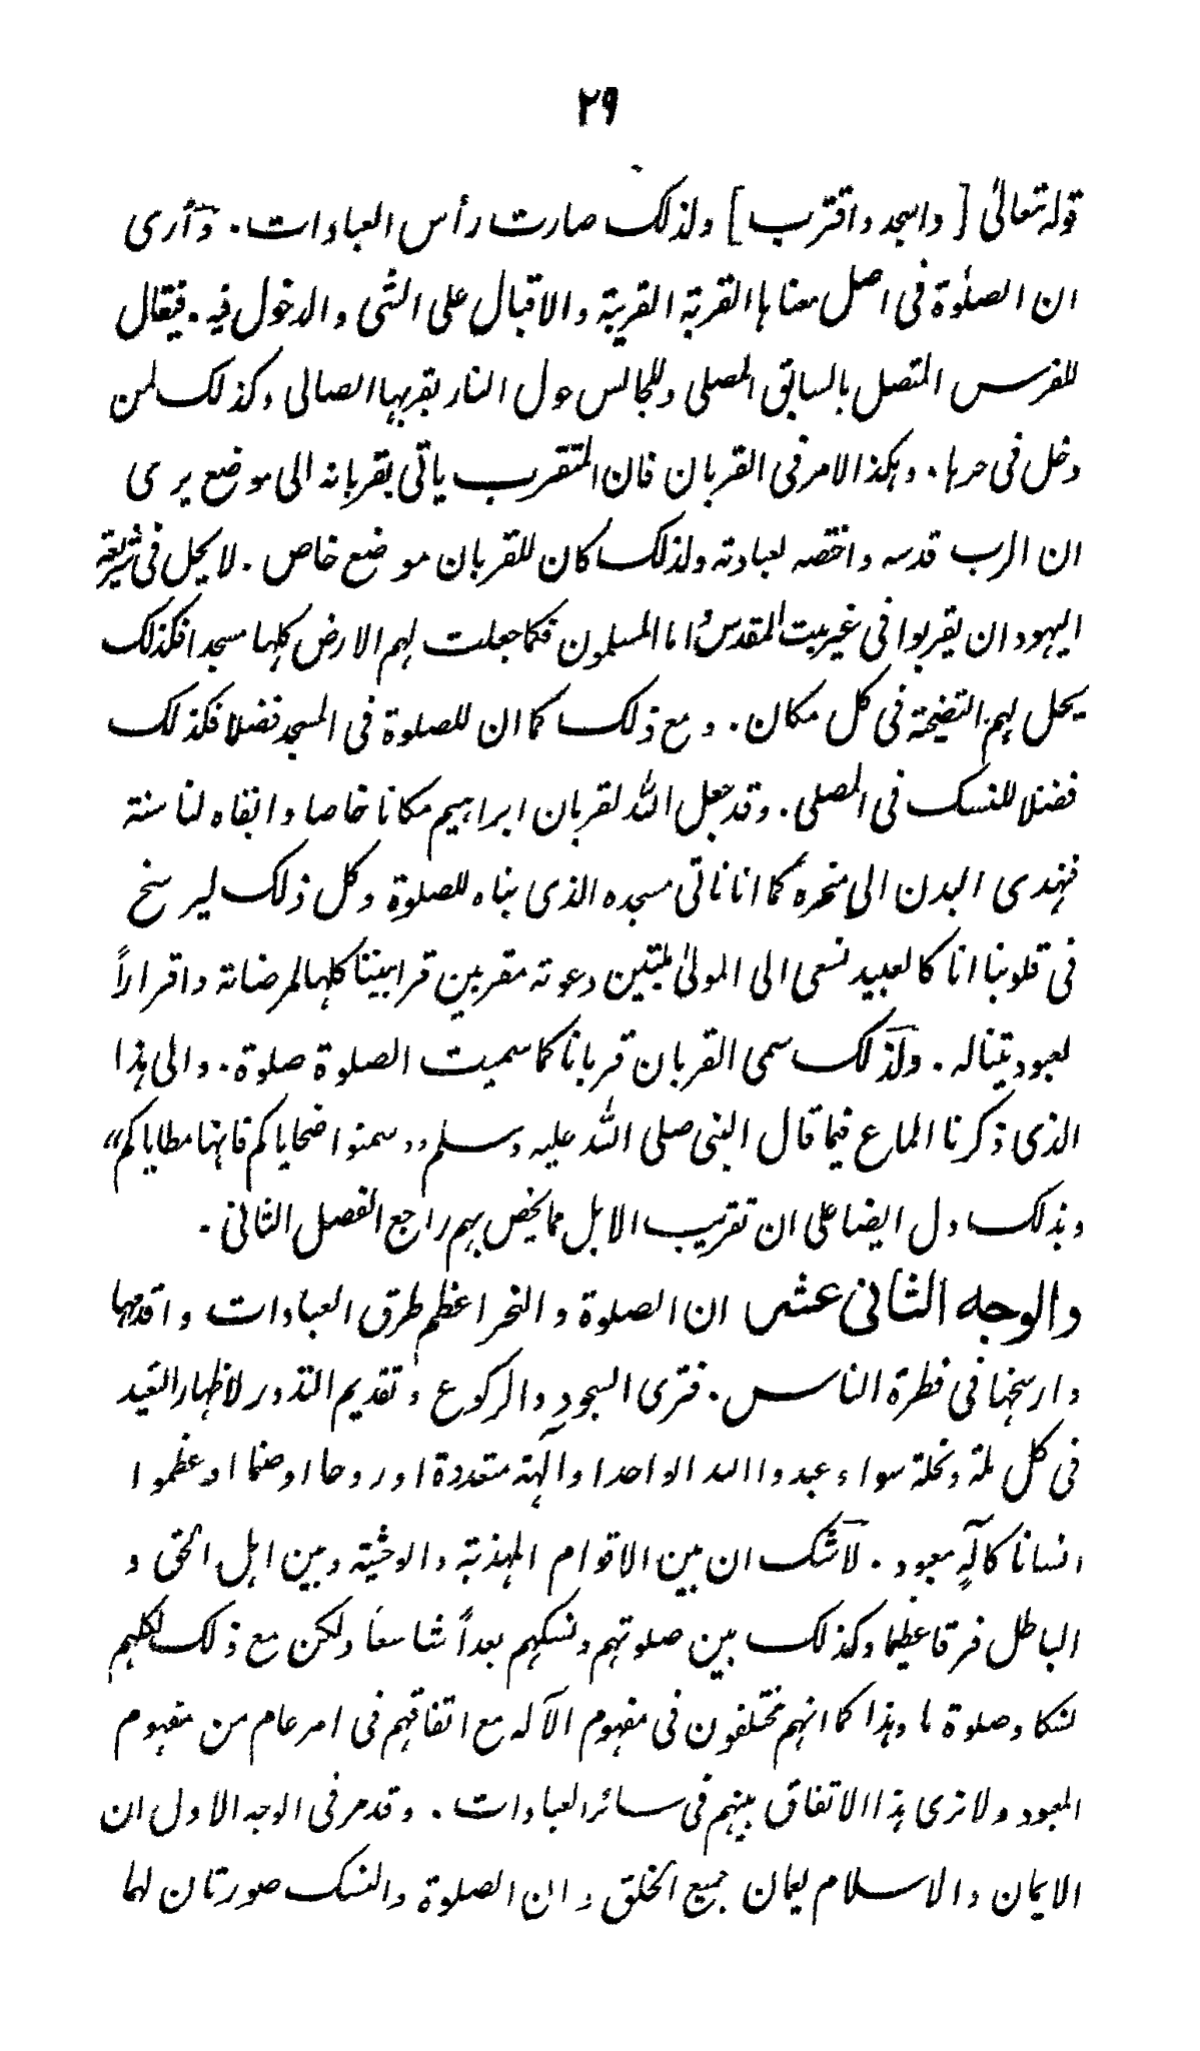 ٢٩
قوله تعالىٰ [ واسجد واقترب ] ولذلک صارت رأس العبادات . وأرى
ان الصلوٰة فى اصل معناها القربة القريبة والاقبال على الشى والدخول فيه . فيقال
للفرس المتصل بالسابق المصلى وللجالس حول النار بقربها الصالى وكذلک لمن
دخل فى حرها . وهكذا الامر فى القربان فان المتقرب ياتى بقربانه الى موضع يرى
ان الرب قدسه واختصه لعبادته ولذلک كان للقربان موضع خاص . لا يحل فى شريعة
اليهود ان يقربوا فى غير بيت المقدس اما المسلمون فكما جعلت لهم الارض كلها مسجدا فكذلک
يحل لهم التضحية فى كل مكان . ومع ذلک كما ان للصلوة فى المسجد فضلا فكذلک
فضلا للنسک فى المصلى . وقد جعل الله لقربان ابراهيم مكانا خاصا وابقاه لنا سنة
فنهدى البدن الى منحره كما انا ناتى مسجده الذى بناه للصلوة وكل ذلک ليرسخ
فى قلوبنا انا كالعبيد نسعى الى المولىٰ ملبّين دعوته مقربين قرابيننا كلها لمرضاته واقراراً
لعبوديتنا له . ولذلک سمى القربان قربانا كما سميت الصلوة صلوة . والى هذا
الذى ذكرنا الماع فيما قال النبى صلى الله عليه وسلم ,, سمنوا ضحاياكم فانها مطاياكم ،،
وبذلک دل ايضا على ان تقريب الابل مما يخص بهم راجع الفصل الثانى .
والوجه الثانى عشر ان الصلوة والنحر اعظم طرق العبادات واقدمها
وارسخها فى فطرة الناس . فترى السجود والركوع وتقديم النذور لاظهار التعبد
فى كل ملة ونحلة سواء عبدوا الله الواحد او آلهة متعددة او روحا او صنما او عظموا
انسانا كالٰه معبود . لا شک ان بين الاقوام المهذبة والوحشية وبين اهل الحق و
الباطل فرقا عظيما وكذلک بين صلوتهم ونسكهم بعداً شاسعاً ولكن مع ذلک لكلهم
نسكا وصلوة ما وهذا كما انهم مختلفون فى مفهوم الآله مع اتفاقهم فى امر عام من مفهوم
المعبود ولا نرى هذا الاتفاق بينهم فى سائر العبادات . وقد مر فى الوجه الاول ان
الايمان والاسلام يعمان جميع الخلق وان الصلوة والنسک صورتان لهما